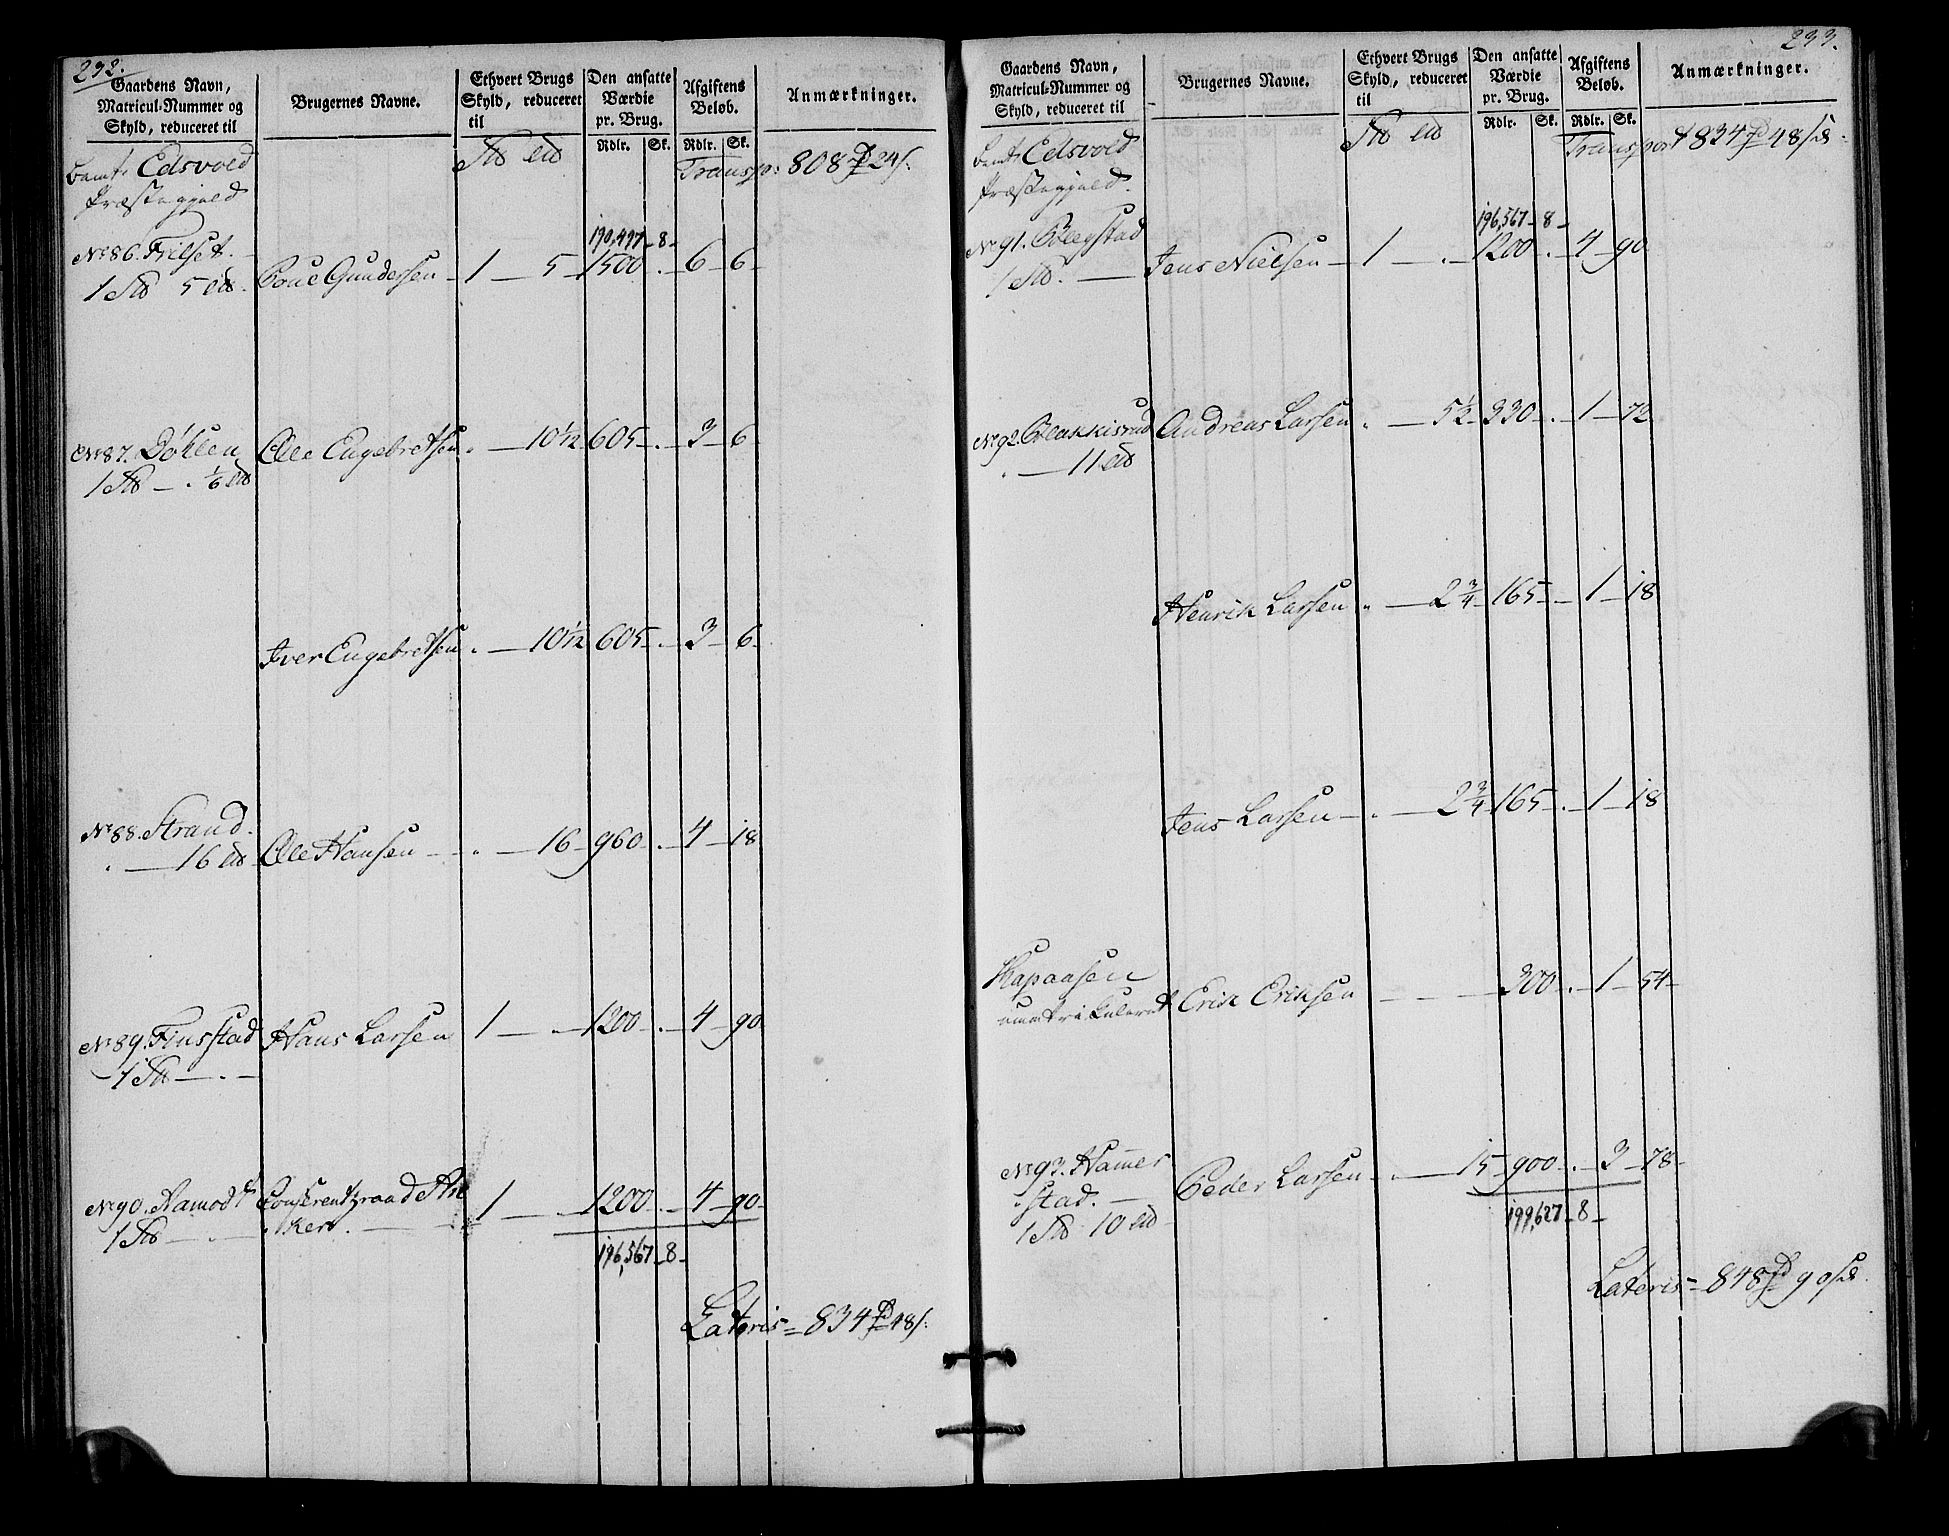 232.
Gaardens Navn, Matricul-Nummer og Skyld, reduceret til
Brugernes Navne.
Ethvert Brugs Skyld, reduceret til
Den ansatte Værdie pr. Brug.
Rdlr. Sk.
Afgiftens Beløb.
Rdlr. Sk.
Anmærkninger.
Edsvold
Præstegjeld
Transp: 808 24
190,497 - 8 -
No 86. Frilset.
1 5 Poul Gundersen 1 - 5 - 1500 . - 6 - 6 -
No 87. Døhlen Ole Engebretsen - 10 1/12 605 - . - 3 - 6
1 - . 1/6
Iver Engebretsen - 10 1/12 605 - . - 3 - 6 -
No 88. Strand.
16 Ole Hansen - 16 - 960 - . - 4 - 18
No 89. Finsstad Hans Larsen 1 - . - 1200 - . - 4 - 90
1
No 90. Aamodt Conferentzraad An
1 ker. 1 - 1200 - . - 4 - 90 -
196,567 - 8 -
Lateris = 834 48
233.
Gaardens Navn, Matricul-Nummer og Skyld, reduceret til
Brugernes Navne.
Ethvert Brugs Skyld, reduceret til
Den ansatte Værdie pr. Brug.
Rdlr. Sk.
Afgiftens Beløb.
Rdlr. Sk.
Anmærkninger.
Edsvold
Præstegjeld.
Transport 834 48
196,567 - 8 -
No 91. Blegstad
1 Jens Nielsen - 1 - . - 1200 - . - 4 - 90
No 92. Blakkisrud Andreas Larsen . - 5 1/2 330 - . - 1 - 72
11
Henrik Larsen . - 2 3/4 - 165 - - 1 - 18
Jens Larsen - . - 2 3/4 - 165 - . - 1 - 18
Skapaasen
umatriculeret Erik Eriksen - - - 300 - . - 1 - 54 -
No 93. Hammer
stad. Peder Larsen - 15 - 900 - . - 3 - 78 -
1 10
199,627 - 8 -
Lateris = 848 90